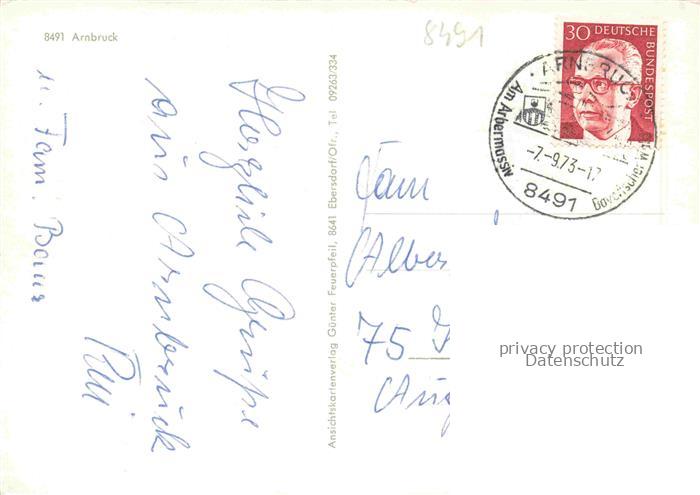 8491 Arnbruck
8491
30 DEUTSCHE
BUNDESPOST
ARNBRUCK
Am Arbermassiv
-7.-9.73-17
8491
Herzliche Grüße
aus Arnbruck
u. Fam. Bauer
Ansichtskartenverlag Günter Feuerpfeil, 8641 Ebersdorf/Ofr., Tel 09263/334
Fam
Alber
75
privacy protection
Datenschutz